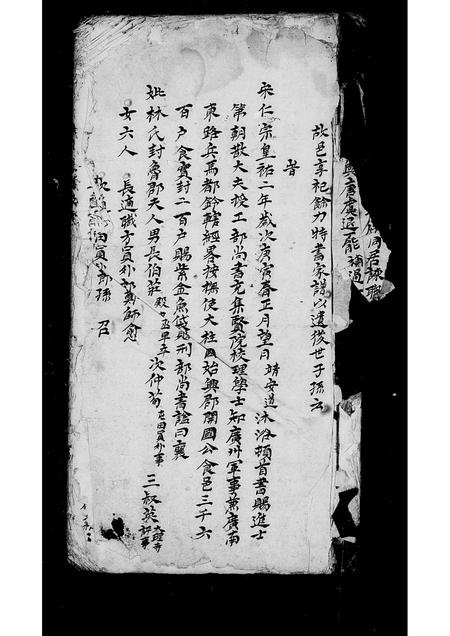 故邑享祀餘力特書家譜以遺後世子孫云
昔
宋仁宗皇祐二年歲次庚寅春正月望日靖安道沐浴頓首書賜進士
第朝散大夫授工部尚書充集賢院校理學士知廣州軍事兼廣南
東路兵馬都鈐轄經畧按撫使大柱國始興郡開國公食邑三千六
百户食實封二百户賜紫金魚袋贈刑部尚書諡曰襄
妣林氏封魯郡夫人男長伯莊殿中丞早卒次仲荀屯田員外事三叔英大理寺評事
女六人長適職方員外郎師愈
田員外郎孫召